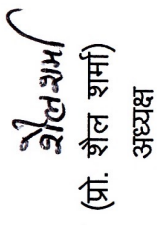 शैल शर्मा
(प्रो. शैल शर्मा)
अध्यक्ष